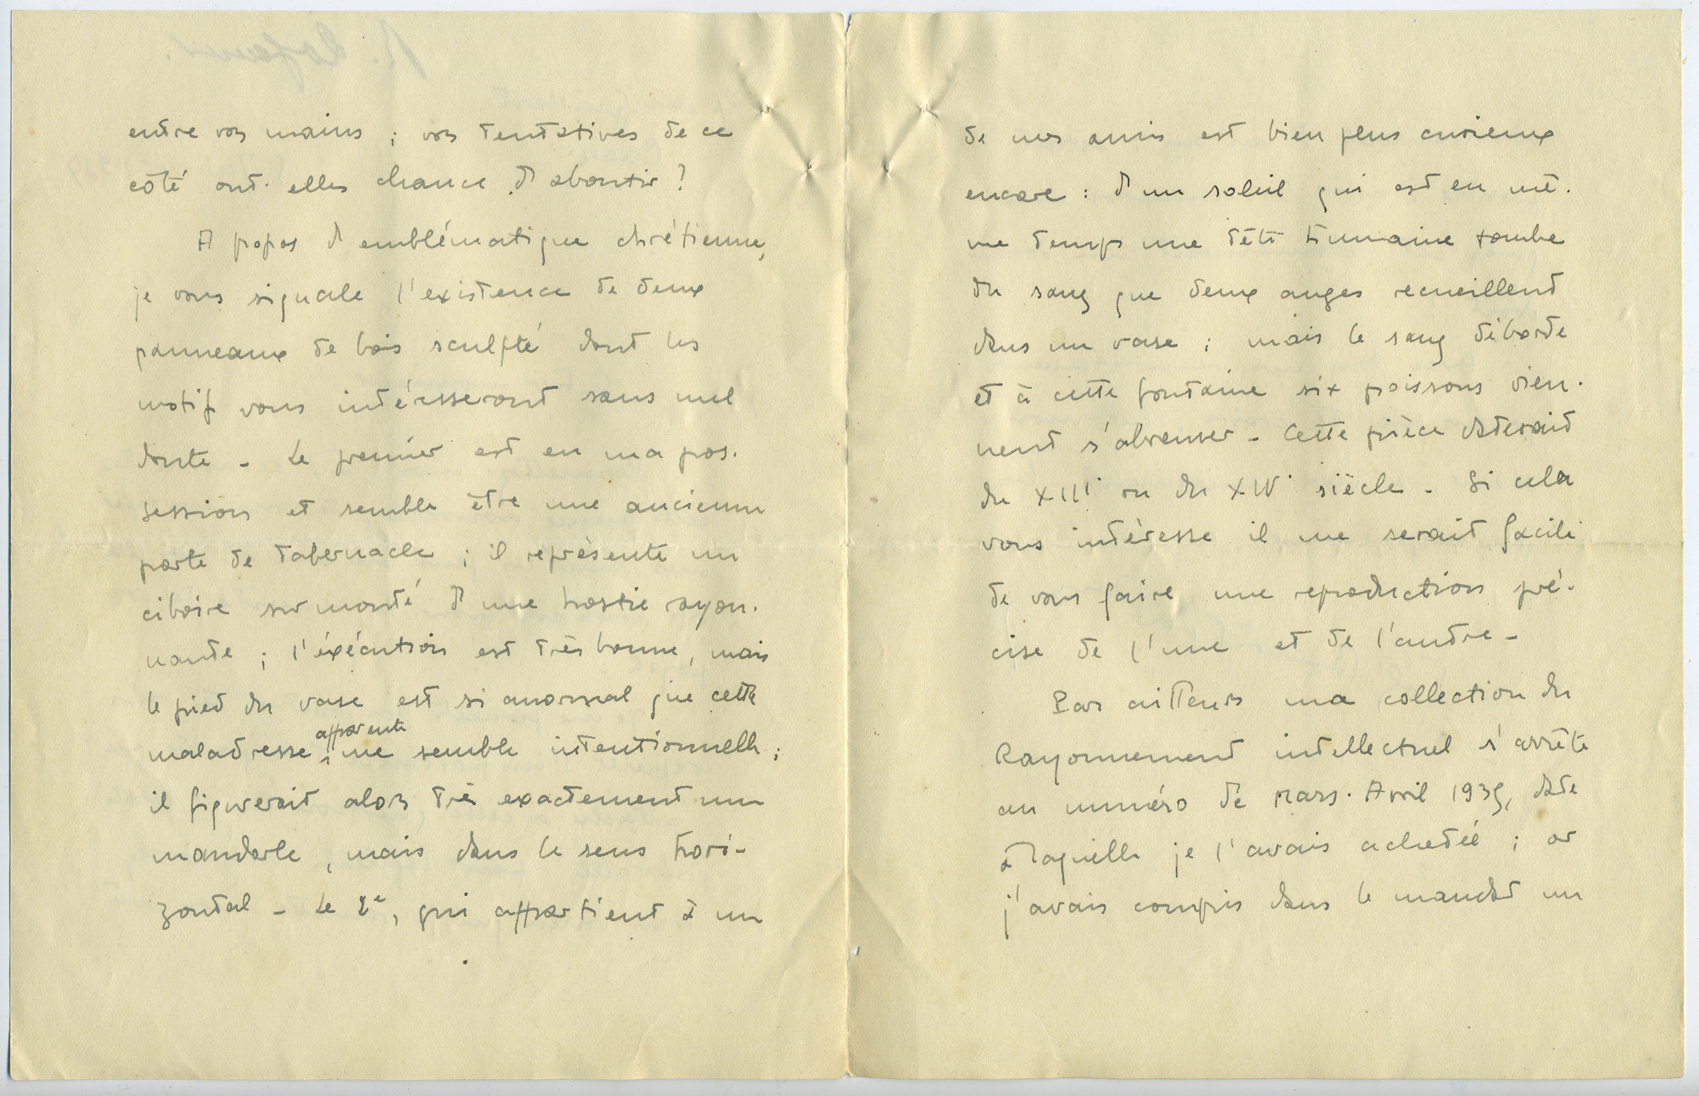 entre vos mains ; vos tentatives de ce
côté ont-elles chance d'aboutir ?
A propos d'emblématique chrétienne,
je vous signale l'existence de deux
panneaux de bois sculpté dont les
motifs vous intéresseront sans nul
doute - Le premier est en ma pos-
session et semble être une ancienne
porte de tabernacle ; il représente un
ciboire surmonté d'une hostie rayon-
nante ; l'éxécution est très bonne, mais
le pied du vase est si anormal que cette
maladresse apparente me semble intentionnelle ;
il figurerait alors très exactement une
mandorle, mais dans le sens hori-
zontal - Le 2e, qui appartient à un
de nos amis est bien plus curieux
encore : d'un soleil qui est en mê-
me temps une tête humaine tombe
du sang que deux anges recueillent
dans un vase ; mais le sang déborde
et à cette fontaine six poissons vien-
nent s'abreuver - Cette pièce daterait
du XIIIe ou du XIVe siècle - Si cela
vous intéresse il me serait facile
de vous faire une reproduction pré-
cise de l'une et de l'autre -
Par ailleurs ma collection du
Rayonnement intellectuel s'arrête
au numéro de Mars-Avril 1939, date
à laquelle je l'avais achetée ; or
j'avais compris dans le mandat un